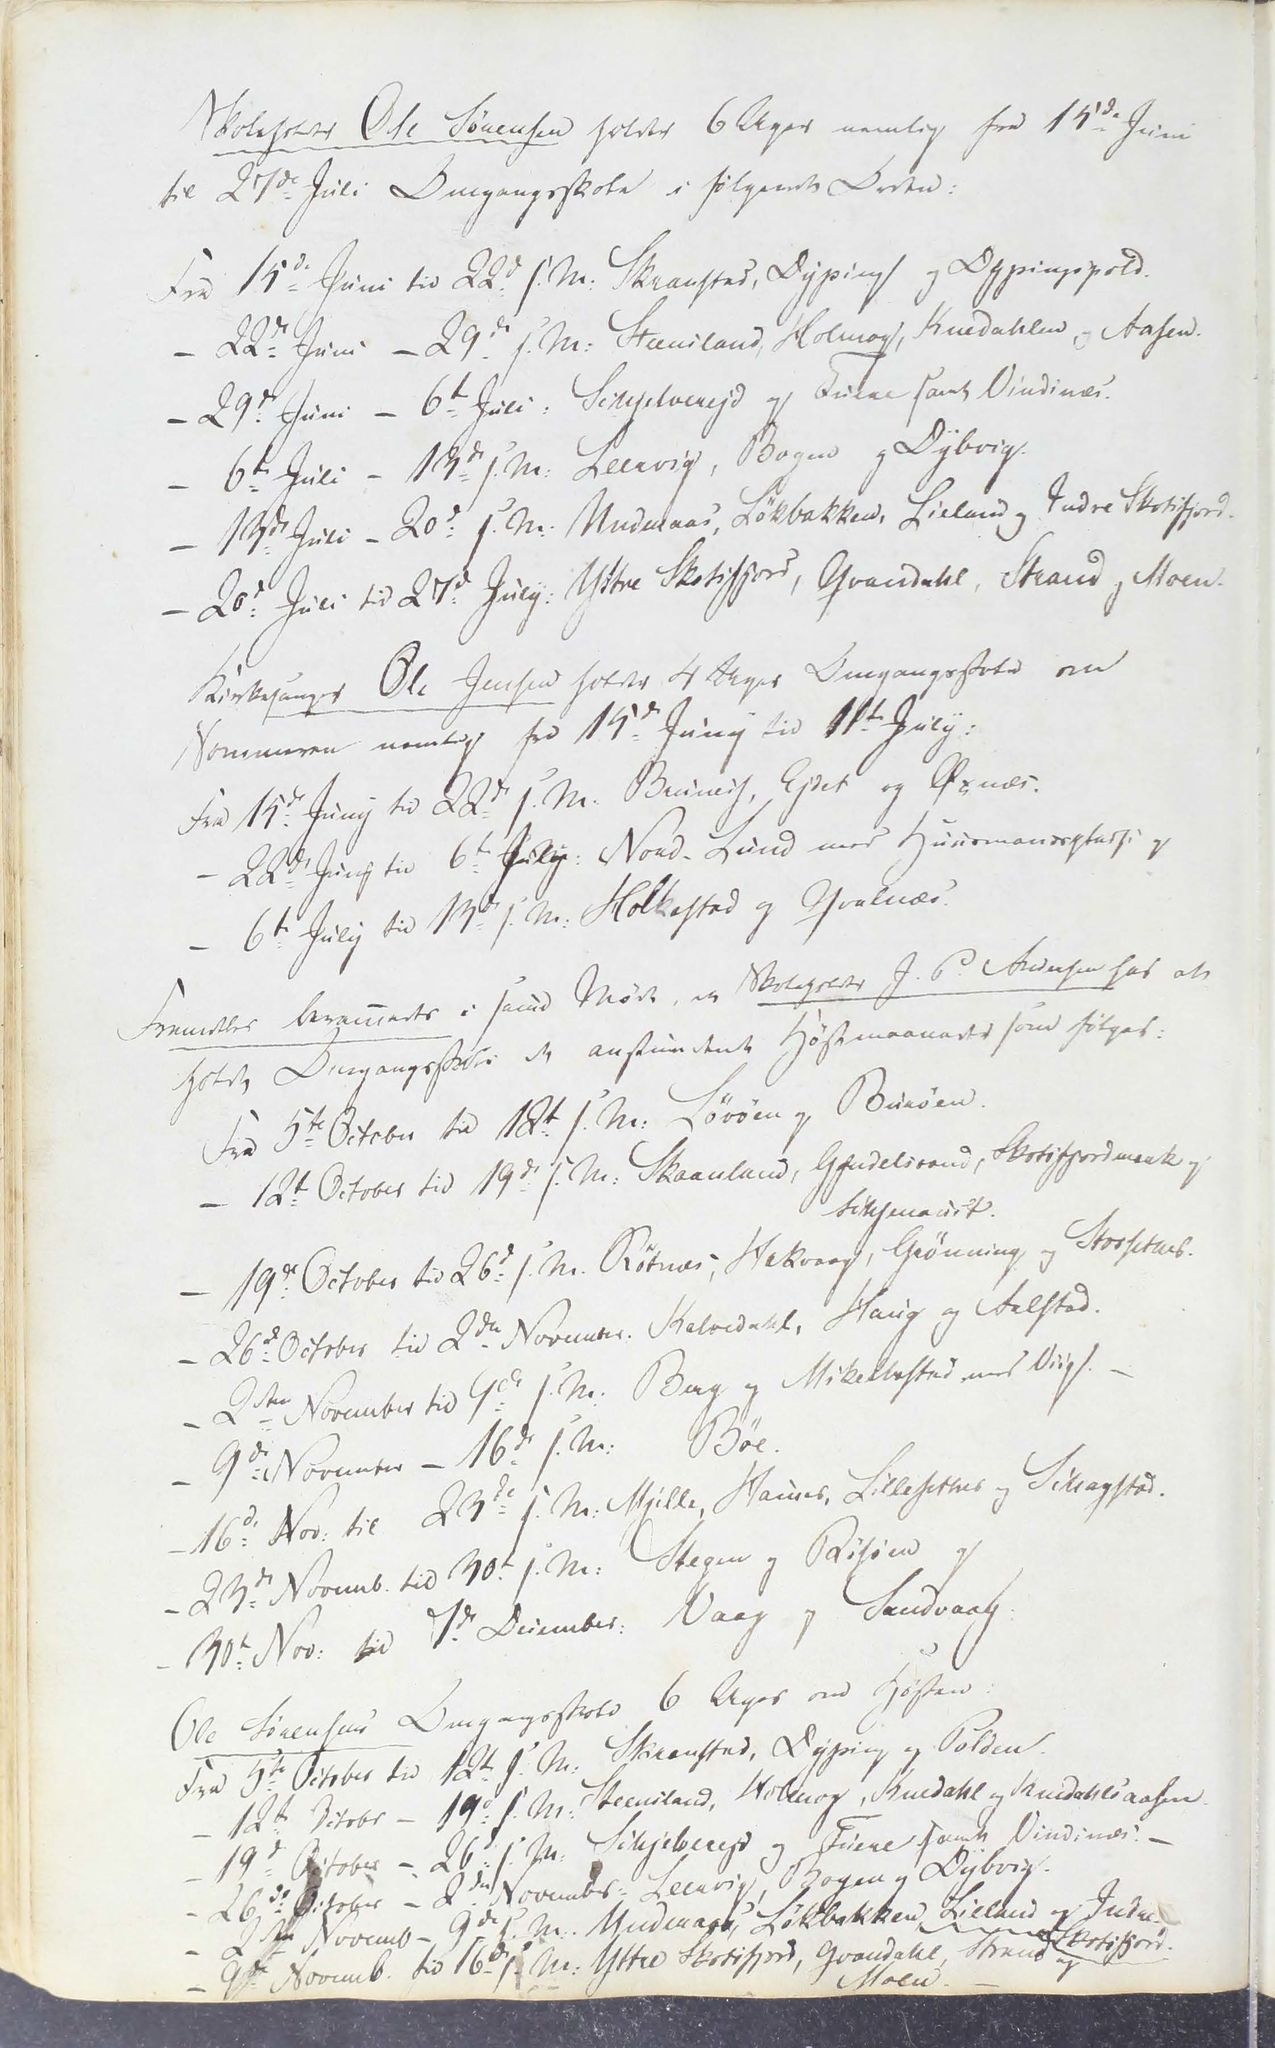 Skoleholder Ole Sörensen holder 6 Uger nemlig fra 15de Juni
til 27de Juli Omgangsskole i følgende Orden:
Fra 15de Juni til 22d s. M: Skranstad, Dyping og Dypingspold.
- 22de Juni - 29de s. M: Steensland, Holmog, Kuedahlen, og Aasen.
- 29de Juni - 6te Juli: Schjelvereid og Furre samt Vindnæs.
- 6te Juli - 13de s. M: Leervig, Bogen og Dybvig.
- 13de Juli - 20de s. M: Undenaas, Lökbakken, Lieland og Indre Skotsfjord.
- 20de Juli til 27de July: Ystre Skotsfjord, Qvandahl, Strand og Moen.
Kirkesanger Ole Jensen holder 4 Uger Omgangsskole om
Sommeren nemlig fra 15de Juny til 11te July:
Fra 15de Juny til 22de s. M. Brunes, Ejdet og Øxnæs.
- 22de Juny til 6te July: Nord-Lund med Huusmandsplads og
- 6te July til 13de s. M: Holkestad og Qvalnæs.
Fremdeles berammedes i samme Møde, at Skoleholder J. P. Andersen har at
holde Omgangsskole de anstundende Höstmaaneder som følger:
Fra 5te October til 12te s. M: Lövöen og Buröen.
- 12te October til 19de s. M: Skaanland, Gjendelsrand, Skotsfjordmark og
Schjenaust.
- 19de October til 26de s. M. Rötnæs, Hakvaag, Grönning og Storsether.
- 26de October til 2den November. Kalvedahl, Haug og Aalstad.
- 2den November til 9de s. M. Berg og Mikkelbostad med Viig. -
- 9de November - 16de s. M: Böe.
- 16de Nov: til 23de s. M: Mjelle, Hanes, Lillesether og Schagstad.
- 23de Novemb. til 30te s. M: Stegen og Rösöen og
- 30te Nov: til 7de December: Vaag og Sandvaag.
Ole Sörensens Omgangsskole 6 Uger om Høsten:
Fra 5te October til 12te s. M: Skranstad, Dyping og Polden.
- 12te Octobr - 19de s. M: Steensland, Holmog, Kuedahl og Kuedahlsaasen.
- 19de October - 26de s. M. Schjelvereid og Furre samt Vindnæs. -
- 26de October - 2den November: Leervig, Bogen og Dybvig.
- 2den Novemb - 9de s. M. Undenaas, Lökbakken, Lieland og Indre
Skotsfjord.
- 9de Novemb. til 16de s. M: Ystre Skotsfjord, Qvandahl, Strand og
Moen. -